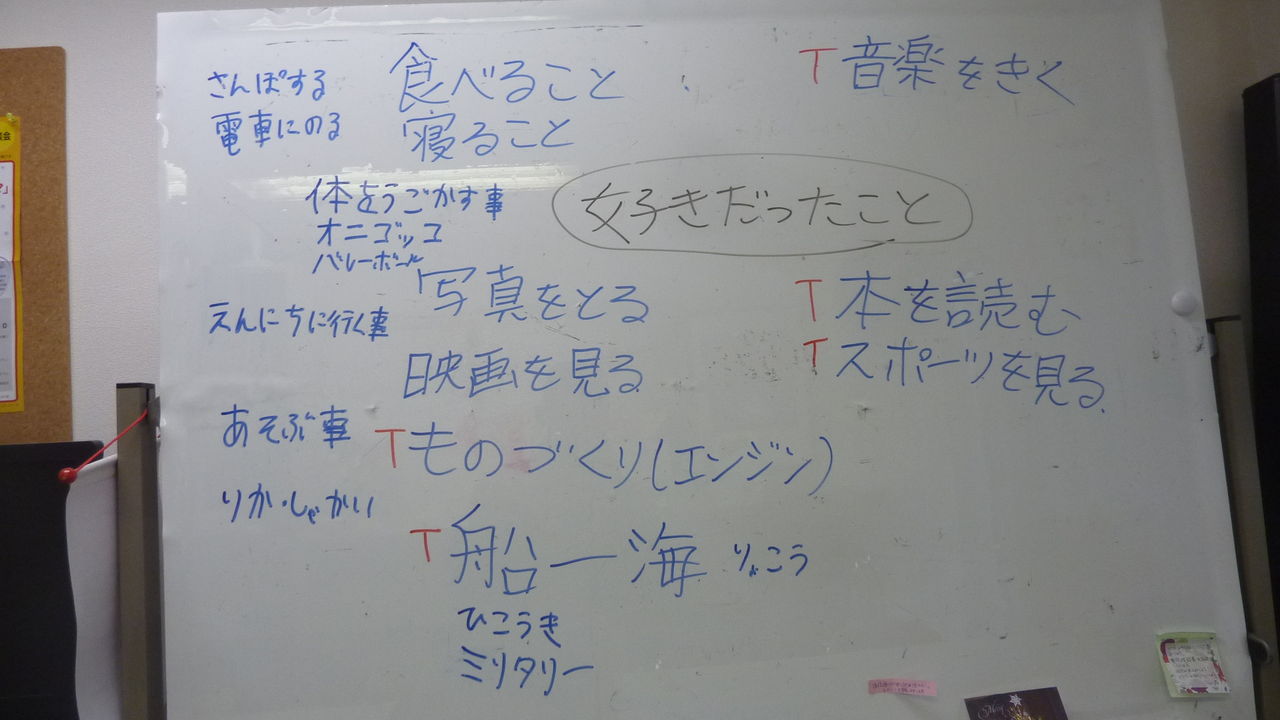 さんぽする
電車にのる
食べること
寝ること
T 音楽をきく
体をうごかす事
オニゴッコ
バレーボール
好きだったこと
えんにちに行く事
写真をとる
映画を見る
T 本を読む
T スポーツを見る
あそぶ事
T ものづくり(エンジン)
りか・しゃかい
T 船ー海 りょこう
ひこうき
ミリタリー
Merry